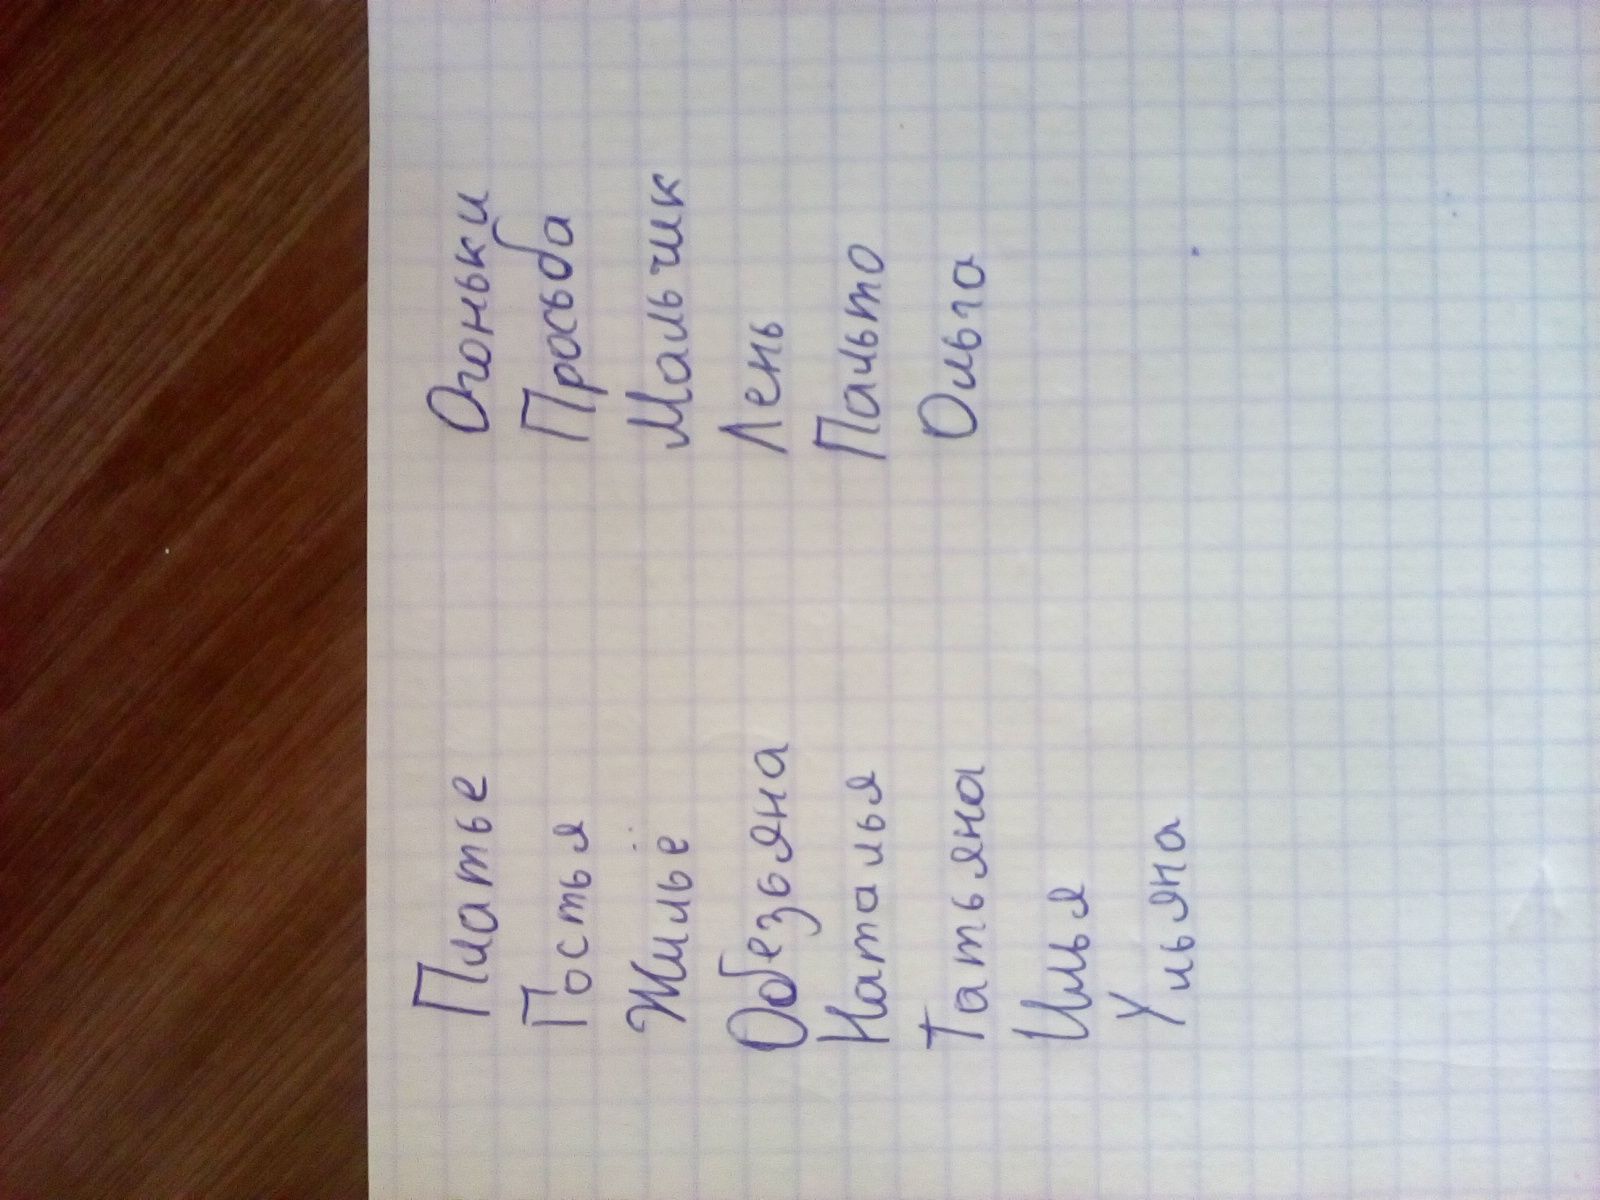 Платье
Гостья
Жильё
Обезьяна
Наталья
Татьяна
Илья
Ульяна
Огоньки
Просьба
Мальчик
Лень
Пальто
Ольга